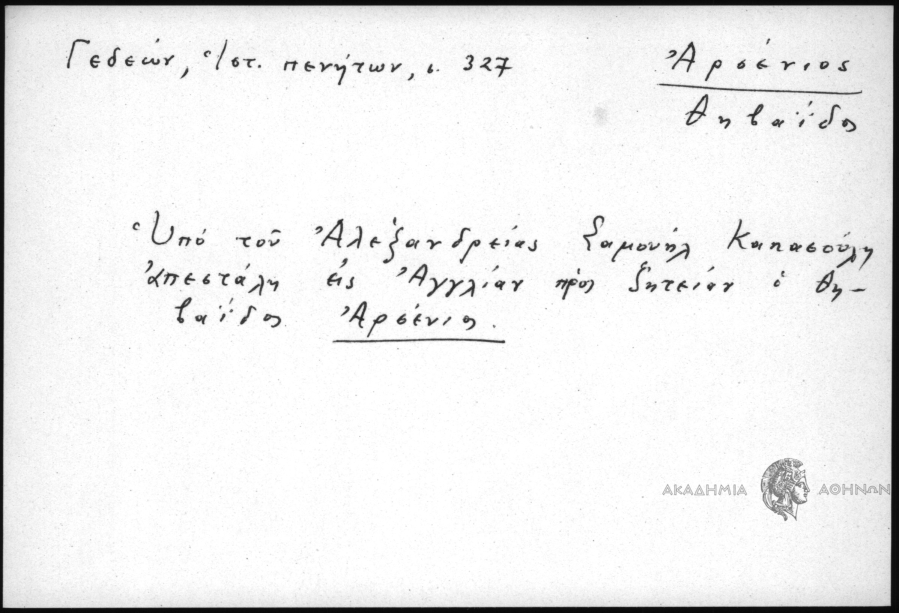 Γεδεών, Ἱστ. πενήτων, σ. 327
Ἀρσένιος
Θηβαΐδος
Ὑπό τοῦ Ἀλεξανδρείας Σαμουήλ Καπασούλη
ἀπεστάλη εἰς Ἀγγλίαν πρός ζητείαν ὁ Θη-
βαΐδος Ἀρσένιος.
ΑΚΑΔΗΜΙΑ ΑΘΗΝΩΝ